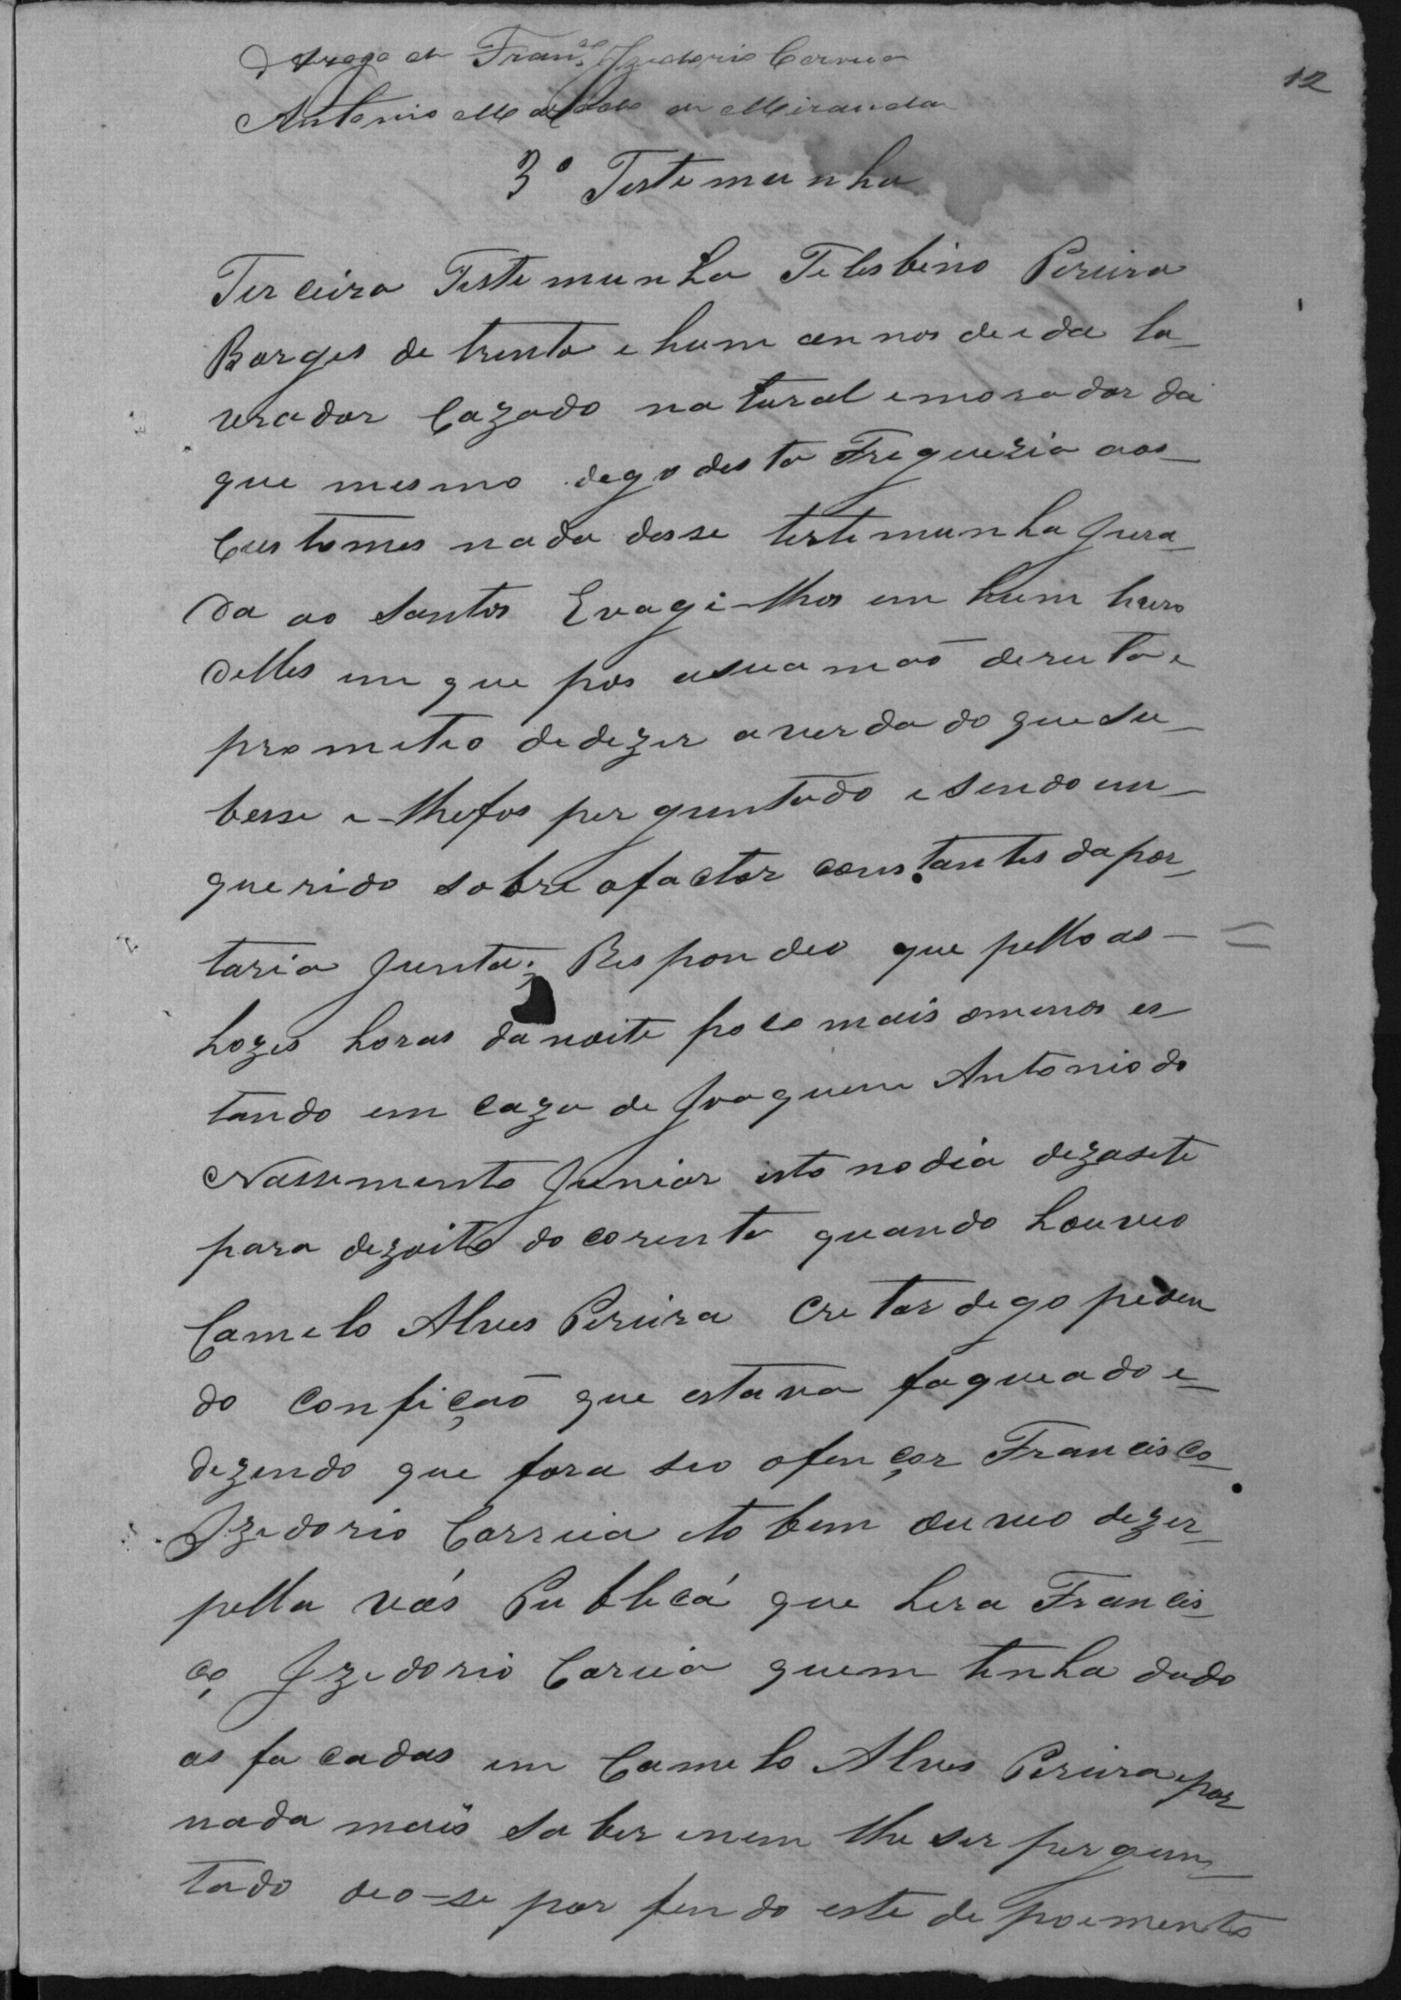 12
Arogo de Fran.co Izedorio Correia
Antonio Machado de Miranda
3º Testemunha
Terceira Testemunha Telesbino Pereira
Borges de trenta e hum annos de eda la-
vrador Cazado natural e morador da
que mesmo dego desta Freguezia aos
Customes nada desse testemunha jura-
da ao Santos Evagi-lhos em hum livro
delles em que pos a sua maõ dereita e
prometeo dedezer a verda do que su-
besse e-lhe fos perguntado e sendo en-
querido sobre o factos constantes da por-
taria junta; Respondeo que pello as-
hozes horas da noite poco mais omenos es-
tando em caza de Joaquem Antonio do
Nassemento Junior isto no dia dezasete
para dezoito do corente quando houvio
Camelo Alves Pereira Cretar dego peden
do confiçaõ que estava faqueado e-
dezendo que fora seo ofençor Francisco
Izedorio Correia e to bem ouvio dezer-
pella vós Publicá que hera Francis-
ço Izedorio Coreia quem tenha dado
as facadas em Camelo Alves Pereira e por
nada mais saber enem lhe ser pergun-
tado deo-se por fendo este depoemento